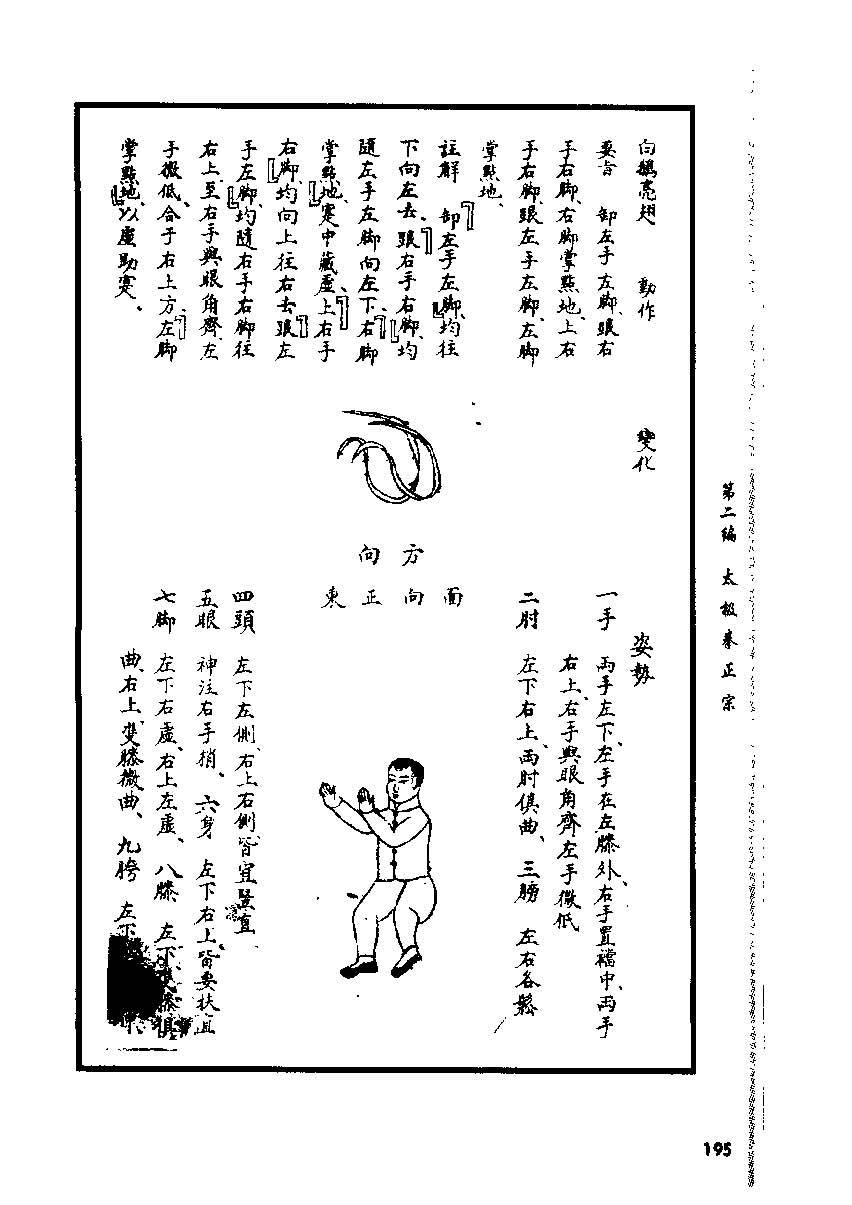 第二編 太极拳正宗
白鵝亮翅 動作 變化 姿勢
要旨 卸左手左脚、跟右
手右脚、右脚掌點地、上右
手右脚、跟左手左脚、左脚
掌點地、
註解 卸左手左脚、均往
下向左去、跟右手右脚、均
隨左手左脚向左下、右脚
掌點地、寔中藏虛、上右手
右脚、均向上往右去跟左
手左脚、均隨右手右脚往
右上至右手與眼角齊、左
手微低、合于右上方、左脚
掌點地、以虛助寔、
方向
面向正東
一手 兩手左下、左手在左膝外、右手置襠中、兩手
右上、右手與眼角齊左手微低
二肘 左下右上、兩肘俱曲、三膀 左右各鬆
四頭 左下左側、右上右側、皆宜豎直
五眼 神注右手梢、六身 左下右上、皆要扶直
七脚 左下右虛、右上左虛、八膝 左下、膝俱
曲、右上、雙膝微曲、九胯 左下
195